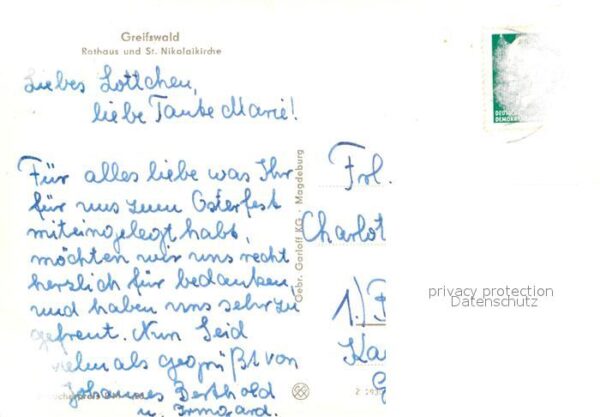 Greifswald
Rathaus und St. Nikolaikirche
Liebes Lottchen,
liebe Tante Marie!
Für alles liebe was Ihr
für uns zum Osterfest
miteingelegt habt,
möchten wir uns recht
herzlich für bedanken,
und haben uns sehr zu
gefreut. Nun Seid
vielmals gegrüßt von
Johannes Berthold
u. Irmgard.
Gebr. Garloff KG · Magdeburg
DEUTSCHE
DEMOKRA
Frl.
Charlot
1.)
Ka
privacy protection
Datenschutz